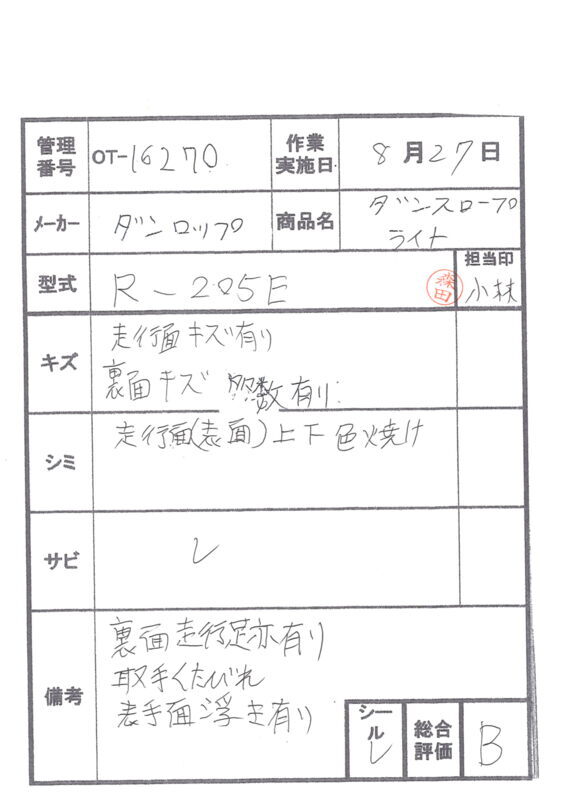 管理番号 OT-16270 作業実施日 8月27日
メーカー ダンロップ 商品名 ダンスロープ
ライト
型式 R-205E 森田 担当印 小林
キズ 走行面キズ有り
裏面キズ 多数有り
シミ 走行面(表面)上下色焼け
サビ レ
備考 裏面走行跡有り
取手くたびれ
表手面浮き有り
シール レ 総合評価 B